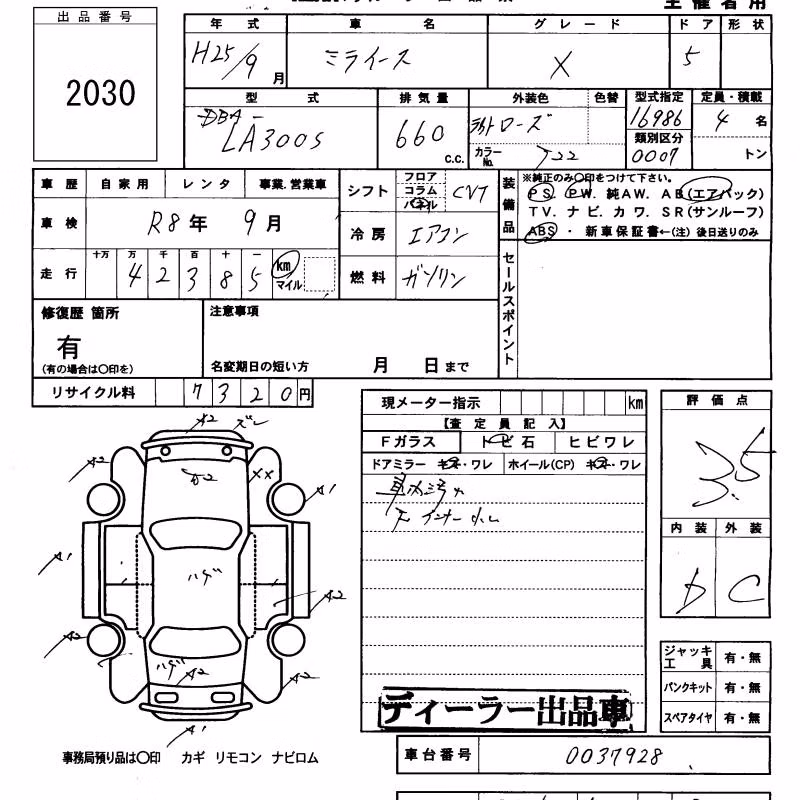 出品番号
2030
主催者用
年式 車名 グレード ドア 形状
H25/9月 ミライース X 5
型式 排気量 外装色 色替 型式指定 定員・積載
DBA-LA300S 660 C.C. ライトローズ 16986 4名
カラーNo. T22 類別区分 0007 トン
車歴 自家用 レンタ 事業.営業車
シフト フロア コラム パネル CVT
装備品 ※純正のみ○印をつけて下さい。
PS. PW. 純AW. AB(エアバック)
TV. ナビ. カワ. SR(サンルーフ)
ABS ・ 新車保証書←(注) 後日送りのみ
車検 R8年 9月
冷房 エアコン
走行 十万 万 千 百 十 一
42385 km マイル
燃料 ガソリン
セールスポイント
修復歴 箇所
有
(有の場合は○印を)
注意事項
名変期日の短い方 月 日まで
リサイクル料 7320円
現メーター指示 km
【査定員記入】
Fガラス トビ石 ヒビワレ
ドアミラー キズ・ワレ ホイール(CP) キズ・ワレ
車内汚れ
評価点
3.5
内装 外装
D C
A2 ズレ
A2 XX
A1
A1
ハゲ
A2
A2
ハゲ A2 A2
A1
ジャッキ工具 有・無
パンクキット 有・無
スペアタイヤ 有・無
ディーラー出品車
車台番号 0037928
事務局預り品は○印 カギ リモコン ナビロム